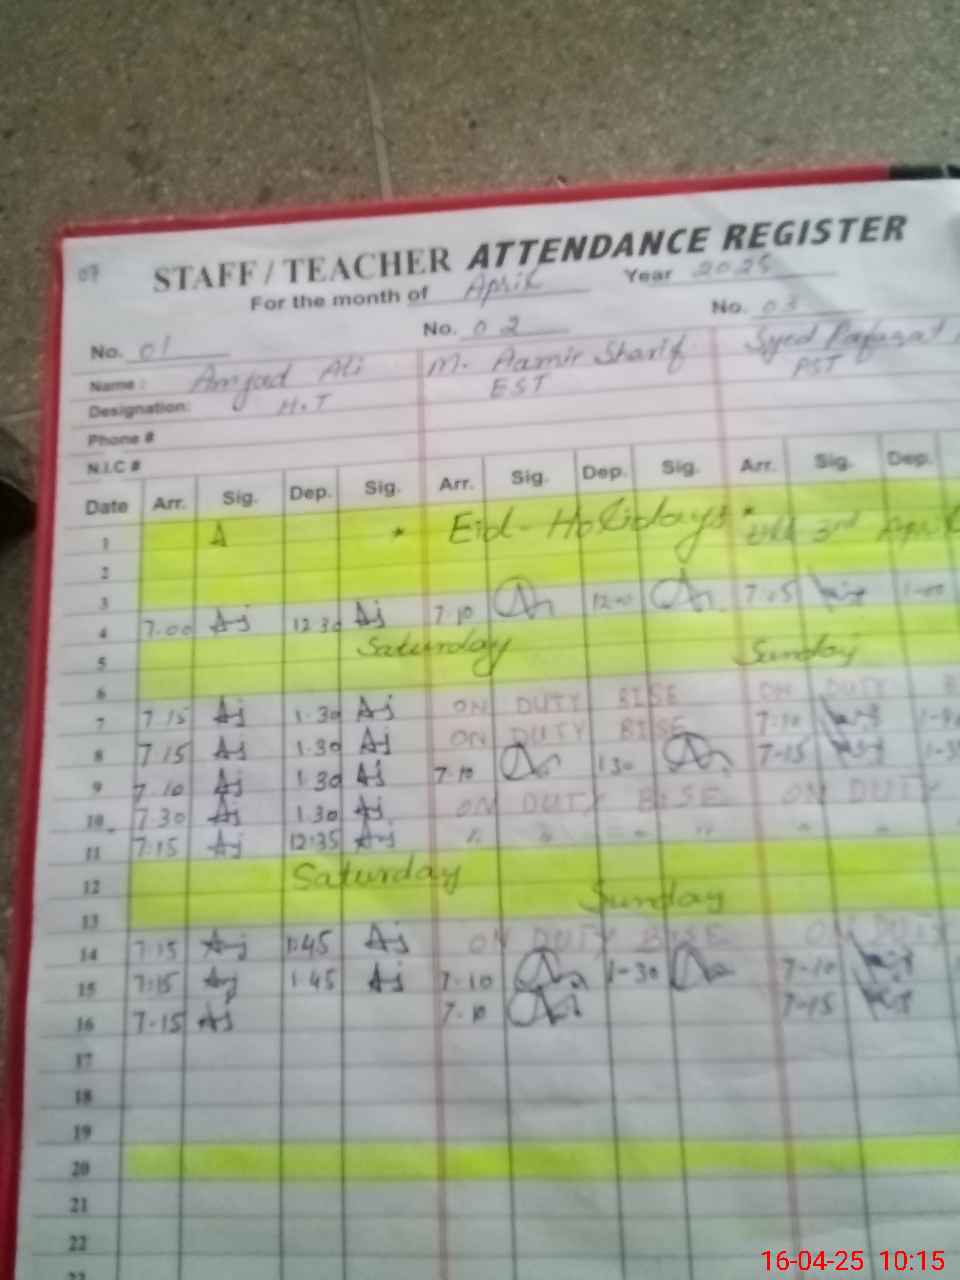 07
STAFF / TEACHER ATTENDANCE REGISTER
For the month of April Year 2025
No. 01 No. 02 No. 03
Name : Amjad Ali M. Aamir Sharif Syed
Designation: H.T EST PST
Phone #
N.I.C #
Date Arr. Sig. Dep. Sig. Arr. Sig. Dep. Sig. Arr. Sig. Dep.
1 * Eid-Holidays * till 3rd April
2
3
4 7:00 Aj 12 30 Aj 7.10 12:00 7:05
5 Saturday Sunday
6
7 7 15 Aj 1.30 Aj ON DUTY BISE ON DUTY
8 7 15 Aj 1.30 Aj ON DUTY BISE 7:10
9 7 10 Aj 1 30 Aj 7.10 1 30 7-15
10 7 30 Aj 1.30 Aj ON DUTY BISE ON DUTY
11 7:15 Aj 12:35 Aj " " " " " "
12 Saturday
13 Sunday
14 7:15 Aj 1:45 Aj ON DUTY BISE ON DUTY
15 7:15 Aj 1.45 Aj 7-10 1-30 7-10
16 7-15 Aj 7.10 7-15
17
18
19
20
21
22
23
16-04-25 10:15